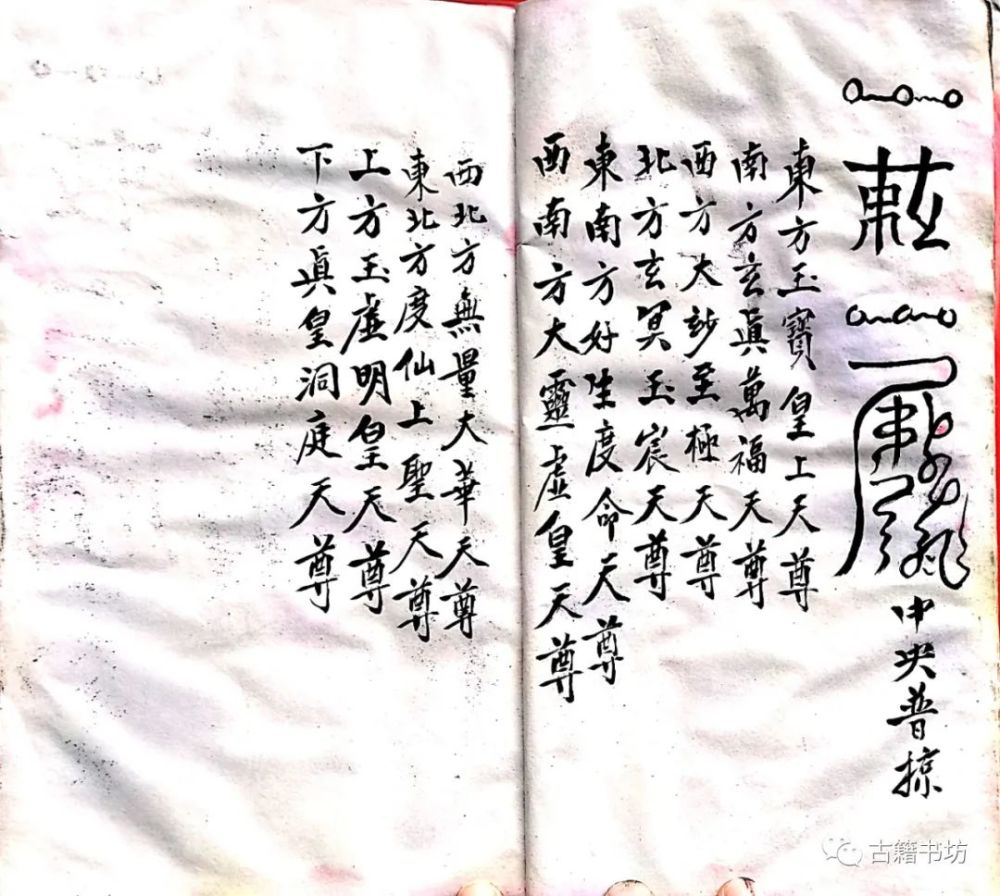 敕
中央普掠
東方玉寶皇上天尊
南方玄眞萬福天尊
西方大妙至極天尊
北方玄冥玉宸天尊
東南方好生度命天尊
西南方大靈虛皇天尊
西北方無量大華天尊
東北方度仙上聖天尊
上方玉虛明皇天尊
下方眞皇洞庭天尊
古籍书坊